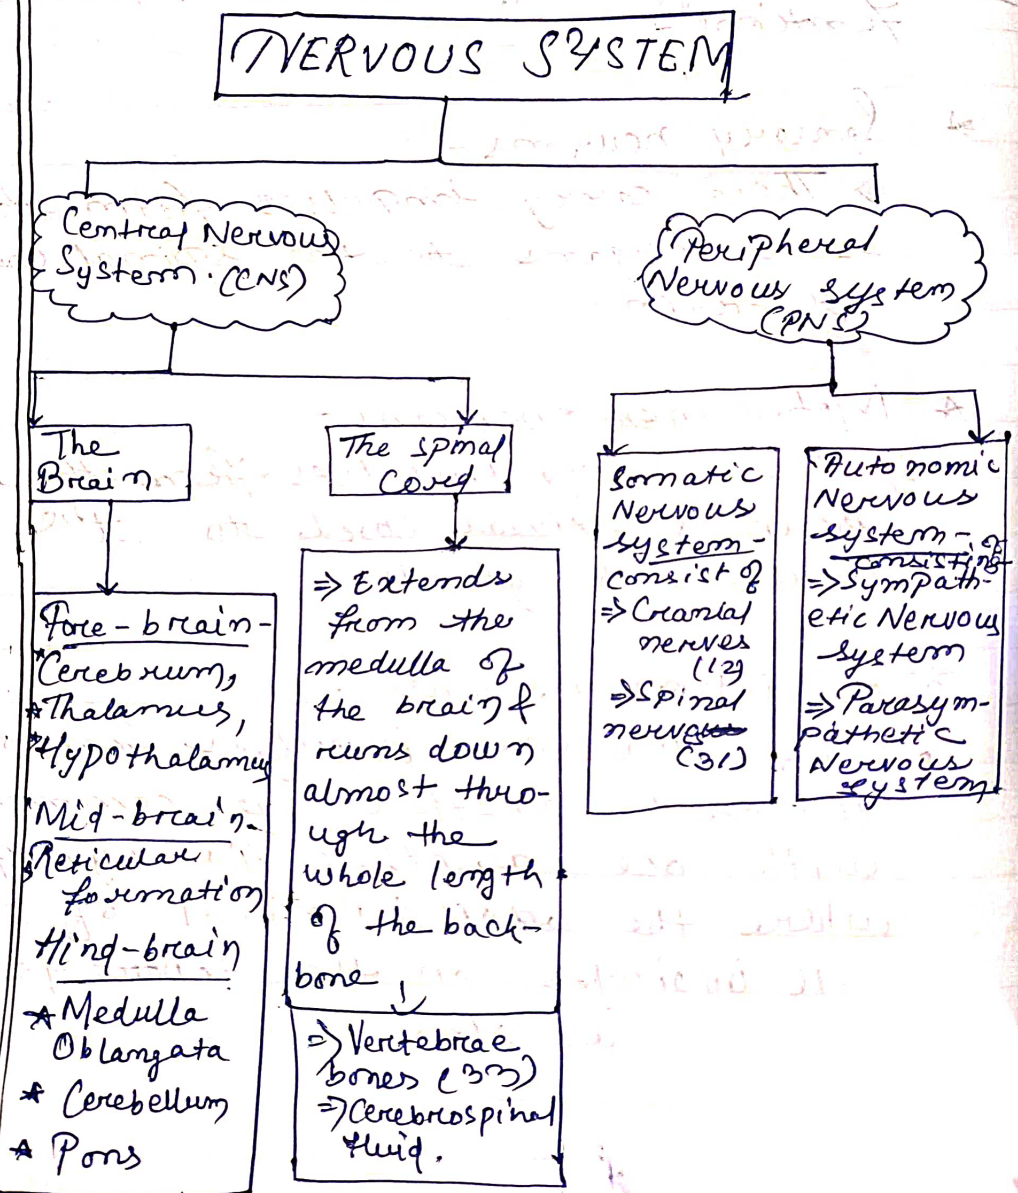 NERVOUS SYSTEM
Central Nervous
System. (CNS)
Peripheral
Nervous system
(PNS)
The
Brain
The spinal
Cord
Fore-brain-
*Cerebrum,
*Thalamus,
*Hypothalamus
Mid-brain-
Reticular
formation
Hind-brain
* Medulla
Oblangata
* Cerebellum
* Pons
⇒ Extends
from the
medulla of
the brain &
runs down
almost thro-
ugh the
whole length
of the back-
bone
⇒ Vertebrae
bones (33)
⇒ Cerebrospinal
fluid.
Somatic
Nervous
system-
consist of
⇒ Cranial
nerves
(12)
⇒ Spinal
nerves
(31)
Autonomic
Nervous
system-
consisting of
⇒ Sympath-
etic Nervous
system
⇒ Parasym-
pathetic
Nervous
system